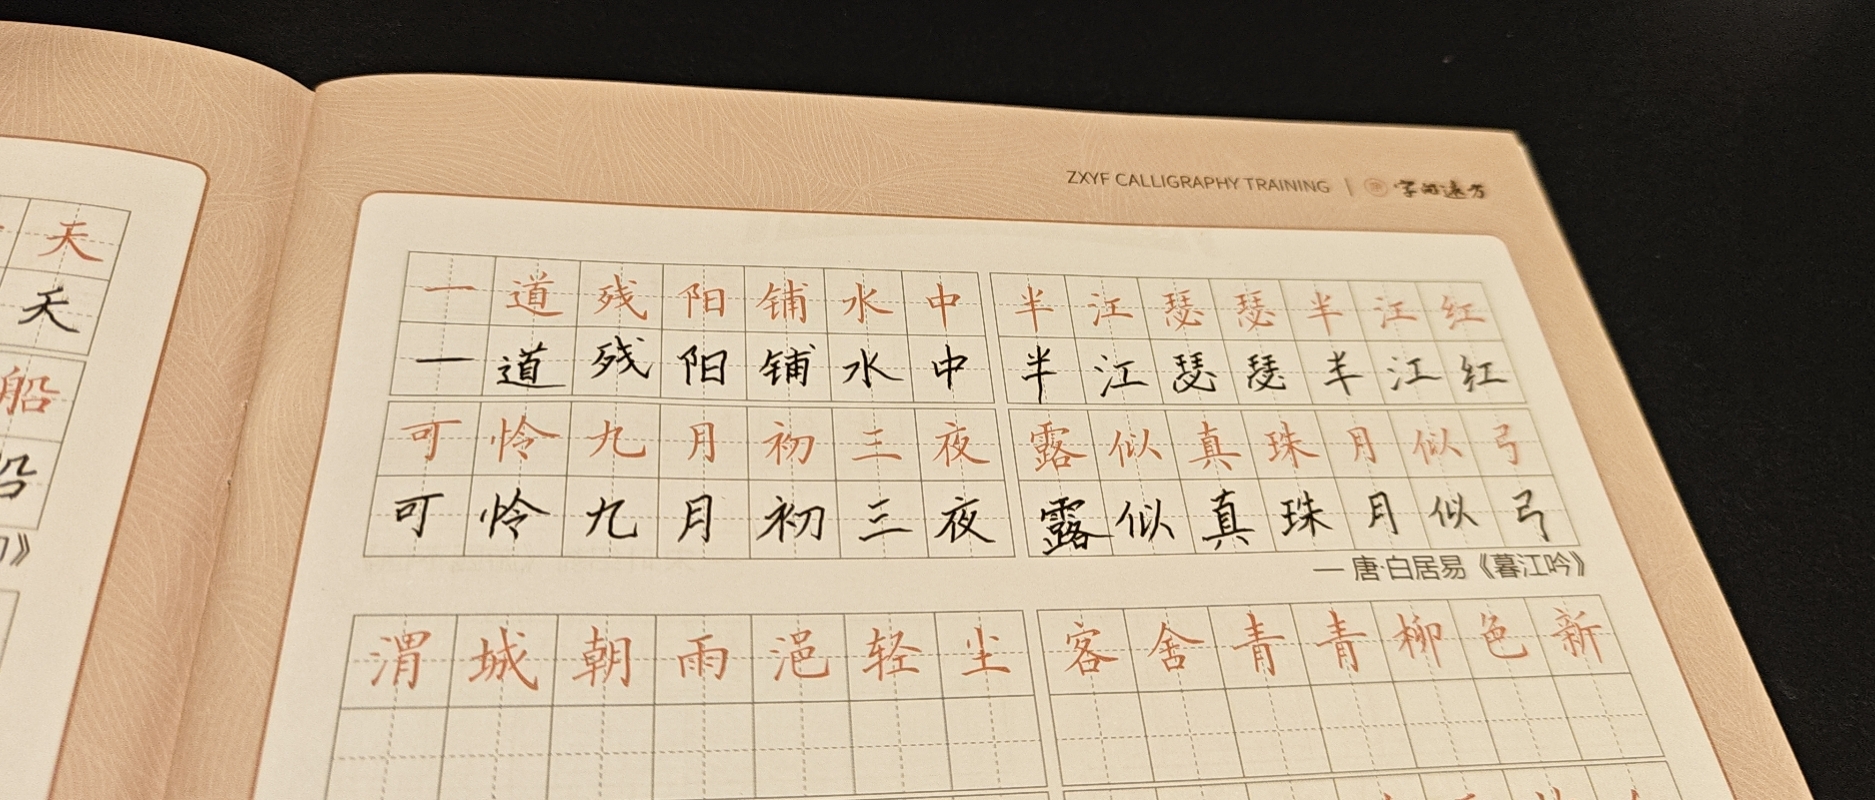 ZXYF CALLIGRAPHY TRAINING | 字如远方
天
夭
船
船
》
一道残阳铺水中 半江瑟瑟半江红
一道残阳铺水中 半江瑟瑟半江红
可怜九月初三夜 露似真珠月似弓
可怜九月初三夜 露似真珠月似弓
— 唐·白居易《暮江吟》
渭城朝雨浥轻尘 客舍青青柳色新